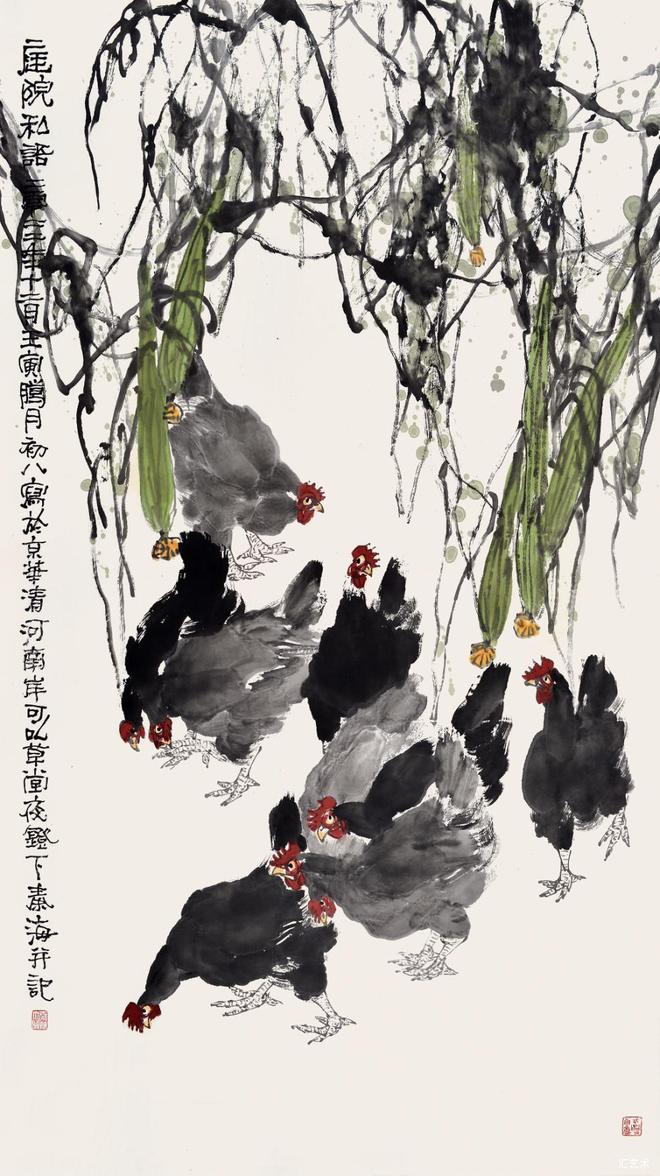 庭院私語 二零二二年十二月壬寅臘月初八寫於京華清河南岸可以草堂夜鐙下秦海并記
汇艺术